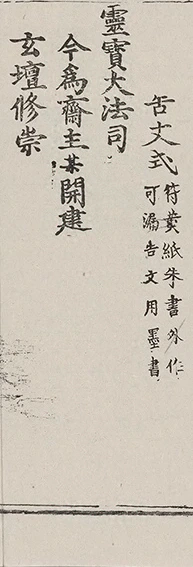 告文式符黃紙朱書外作
可漏告文用墨書
靈寶大法司
今為齋主某開建
玄壇修崇